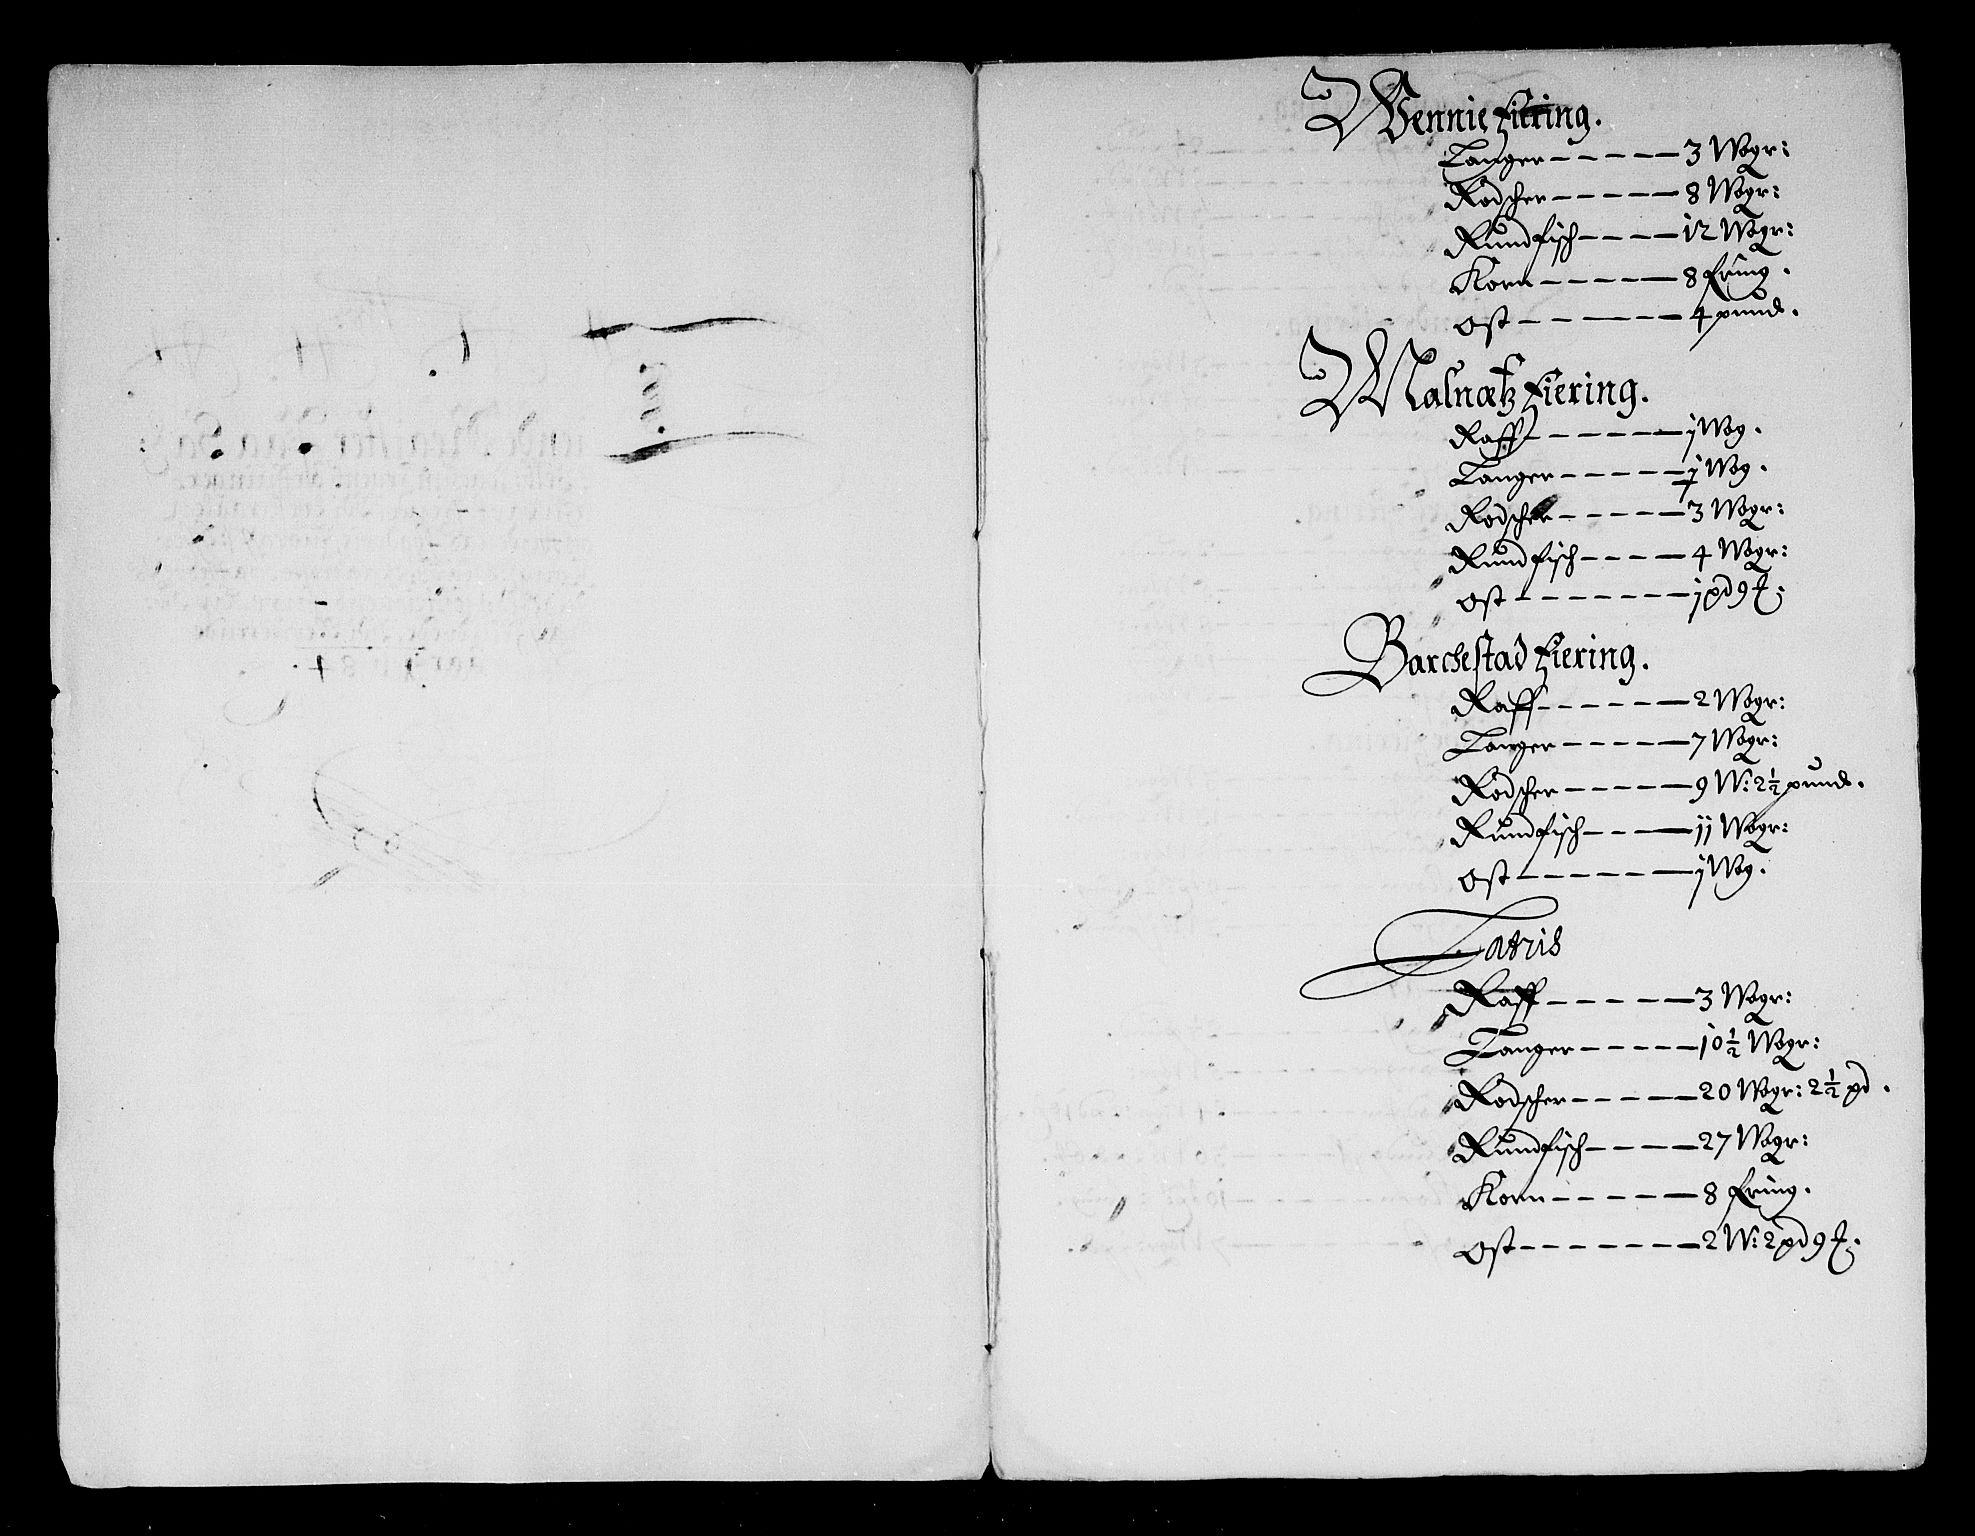 Wennie fiering.
Langer - - - - - 3 Wogr:
Rodscher - - - - - 8 Wogr:
Rundfisch - - - - 12 Wogr:
Korn - - - - - - 8 fring.
Ost - - - - - - 4 pund.
Malnætz fiering.
Raff - - - - - - 1 Wog.
Langer - - - - - 1 Wog.
Rodscher - - - - - 3 Wogr:
Rundfisch - - - - 4 Wogr:
Ost - - - - - - - 1 pd 9
Barchestad fiering.
Raff - - - - - - 2 Wogr:
Langer - - - - - 7 Wogr:
Rodscher - - - - - 9 W: 2½ pund.
Rundfisch - - - - 11 Wogr:
Ost - - - - - - 1 Wog.
Latris
Raff - - - - - 3 Wogr:
Langer - - - - - 10½ Wogr:
Rodscher - - - - - 20 Wogr: 2½ pd.
Rundfisch - - - - 27 Wogr:
Korn - - - - - - 8 fring.
Ost - - - - - - - 2 W: 2 pd 9